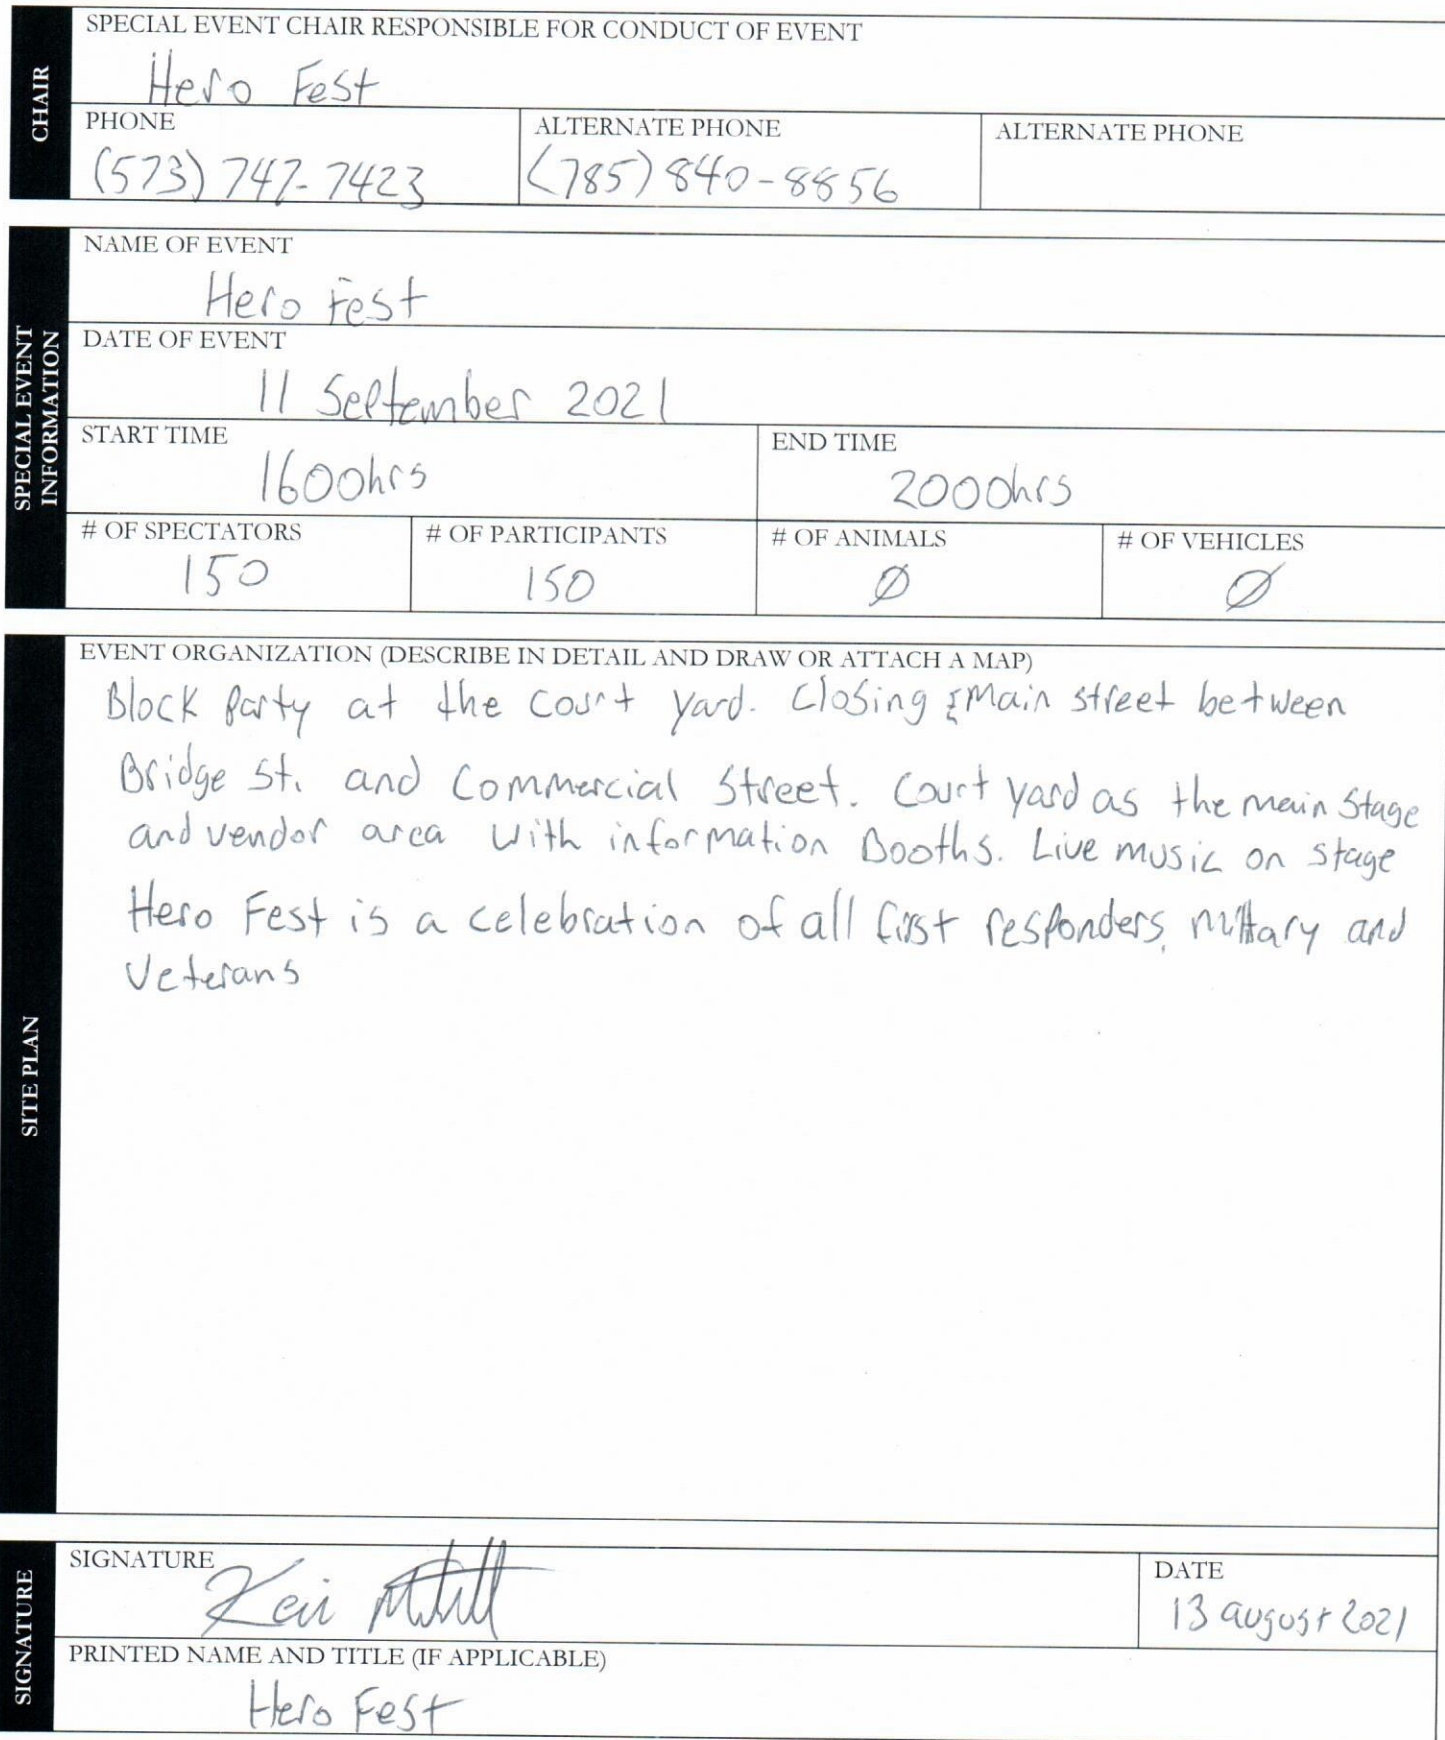 SPECIAL EVENT CHAIR RESPONSIBLE FOR CONDUCT OF EVENT
Hero Fest
CHAIR
PHONE
ALTERNATE PHONE
ALTERNATE PHONE
(573) 747-7423
(785) 840-8856
NAME OF EVENT
Hero Fest
SPECIAL EVENT
INFORMATION
DATE OF EVENT
11 September 2021
START TIME
END TIME
1600hrs
2000hrs
# OF SPECTATORS
# OF PARTICIPANTS
# OF ANIMALS
# OF VEHICLES
150
150
Ø
Ø
SITE PLAN
EVENT ORGANIZATION (DESCRIBE IN DETAIL AND DRAW OR ATTACH A MAP)
Block Party at the Court yard. Closing Main street between
Bridge St. and Commercial Street. Court yard as the main Stage
and vendor area with information Booths. Live music on stage
Hero Fest is a celebration of all first responders, military and
Veterans
SIGNATURE
SIGNATURE
DATE
13 august 2021
PRINTED NAME AND TITLE (IF APPLICABLE)
Hero Fest